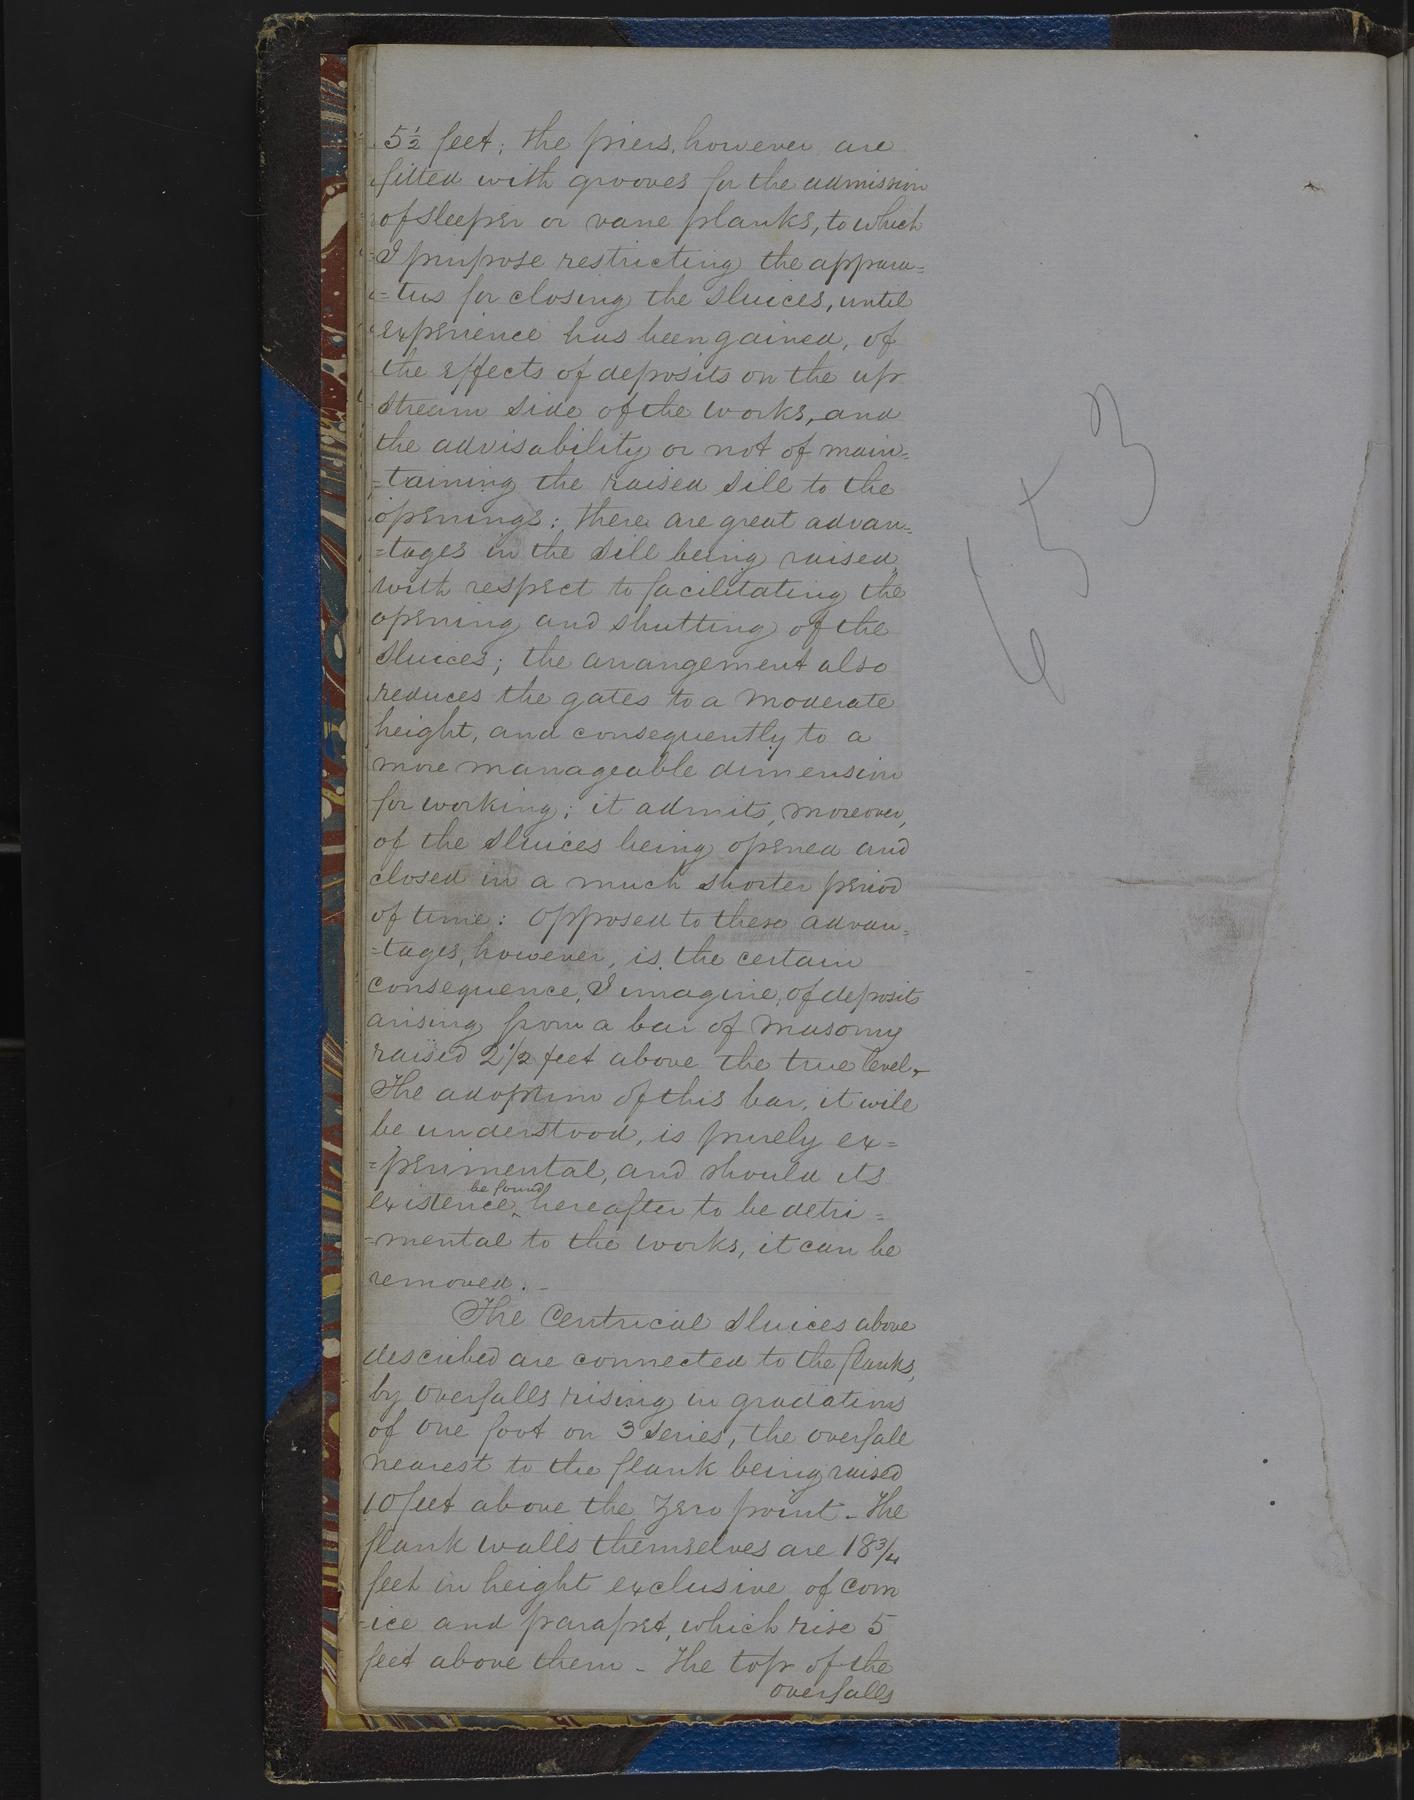 5½ feet; the piers, however are
fitted with grooves for the admission
of sleeper or vane planks, to which
I purpose restricting the appara=
=tus for closing the sluices, until
experience has been gained, of
the effects of deposits on the up
stream side of the works, and
the advisability or not of main=
=taining the raised sill to the
openings: there are great advan=
=tages in the sill being raised,
with respect to facilitating the
opening and shutting of the
sluices; the arrangement also
reduces the gates to a moderate
height, and consequently to a
more manageable dimension
for working; it admits, moreover,
of the sluices being opened and
closed in a much shorter period
of time: opposed to these advan=
=tages, however, is the certain
consequence, I imagine, of deposits
arising from a bar of masonry
raised 2½ feet above the true level.
The adoption of this bar, it will
be understood, is purely ex=
=perimental, and should its
existence be found hereafter to be detri=
=mental to the works, it can be
removed. -
The Centrical sluices above
described are connected to the flanks,
by overfalls rising in gradations
of one foot on 3 series, the overfall
nearest to the flank being raised
10 feet above the zero point - The
flank walls themselves are 18¾
feet in height exclusive of corn
=ice and parapet, which rise 5
feet above them - The top of the
overfalls
653